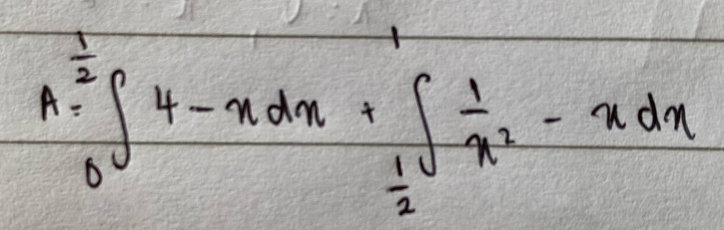 A = ∫₀^(1/2) 4 - x dx + ∫_(1/2)^1 1/x² - x dx